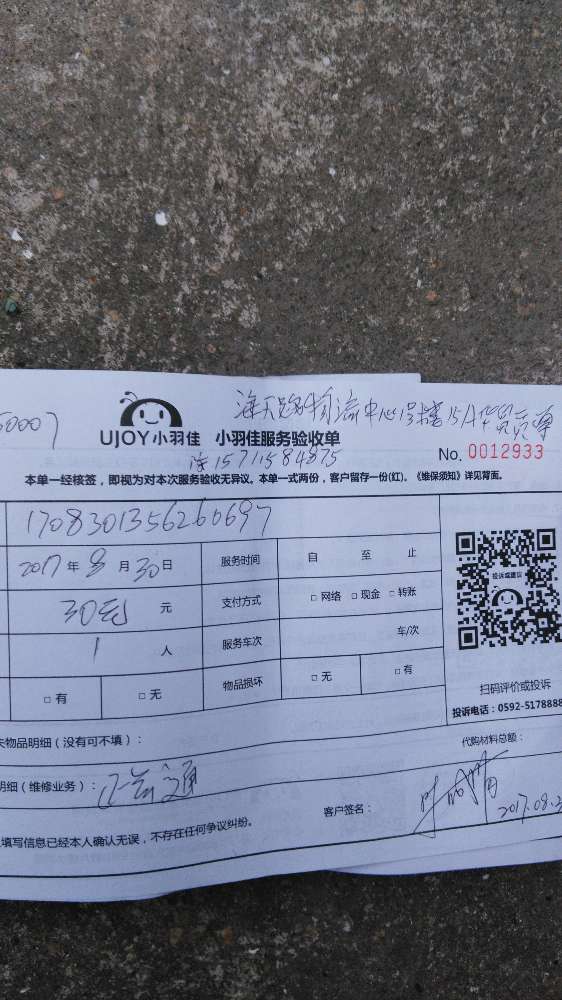 海天路物流中心
UJOY小羽佳 小羽佳服务验收单
15711584875
No. 0012933
本单一经核签，即视为对本次服务验收无异议。本单一式两份，客户留存一份(红)。《维保须知》详见背面。
1708301356260697
2017年8月30日 服务时间 自 至 止
30元 元 支付方式 □ 网络 □ 现金 □ 转账
1 人 服务车次 车/次
□ 有 □ 无 物品损坏 □ 无 □ 有
投诉或建议
扫码评价或投诉
投诉电话：0592-5178888
物品明细（没有可不填）：
代购材料总额：
明细（维修业务）：
客户签名：
填写信息已经本人确认无误，不存在任何争议纠纷。